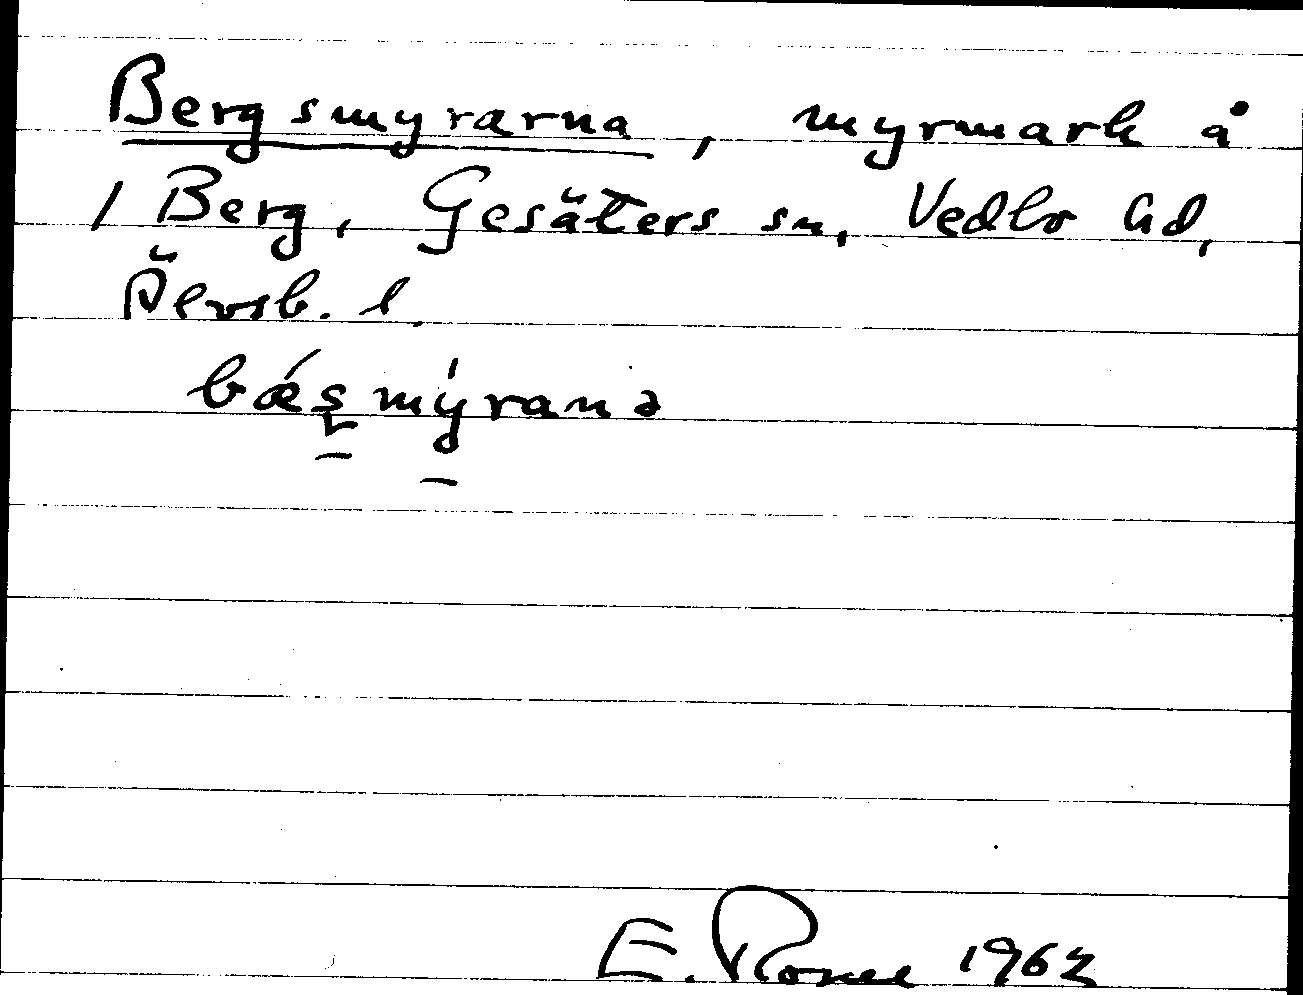 Bergsmyrarna, myrmark å
/ Berg, Gesäters sn, Vedbo hd,
Älvsb. l.
bǽʂmýranə
E. 1962